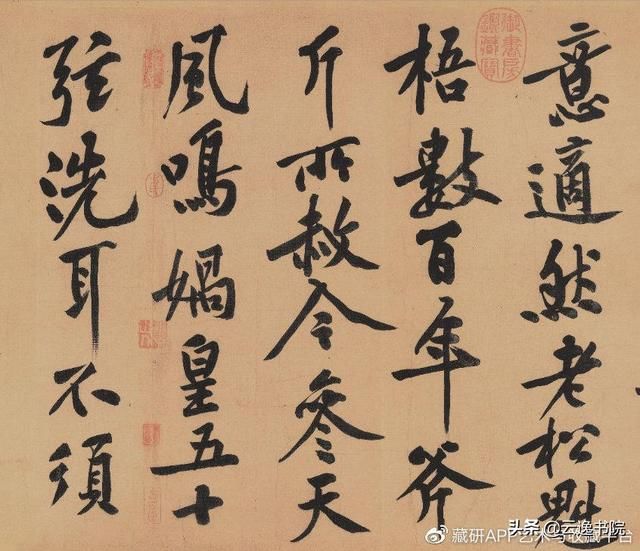 意適然老松魁
梧數百年斧
斤所赦今參天
風鳴媧皇五十
弦洗耳不須
御書房鑑藏寶
头条 @云逸书院
藏研APP艺术与收藏平台